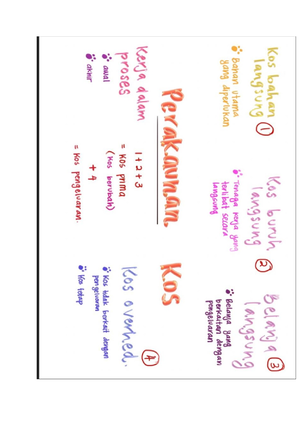 Kos bahan
langsung ①
Bahan utama
yang diperlukan
Kos buruh
langsung ②
Tenaga kerja yang
terlibat secara
langsung
Belanja ③
langsung
Belanja yang
berkaitan dengan
pengeluaran
Perakaunan Kos
Kerja dalam
proses
awal
akhir
1 + 2 + 3
= Kos prima
(Kos berubah)
+ 4
= Kos pengeluaran.
④
Kos overhed.
Kos tidak berkait dengan
pengeluaran
Kos tetap